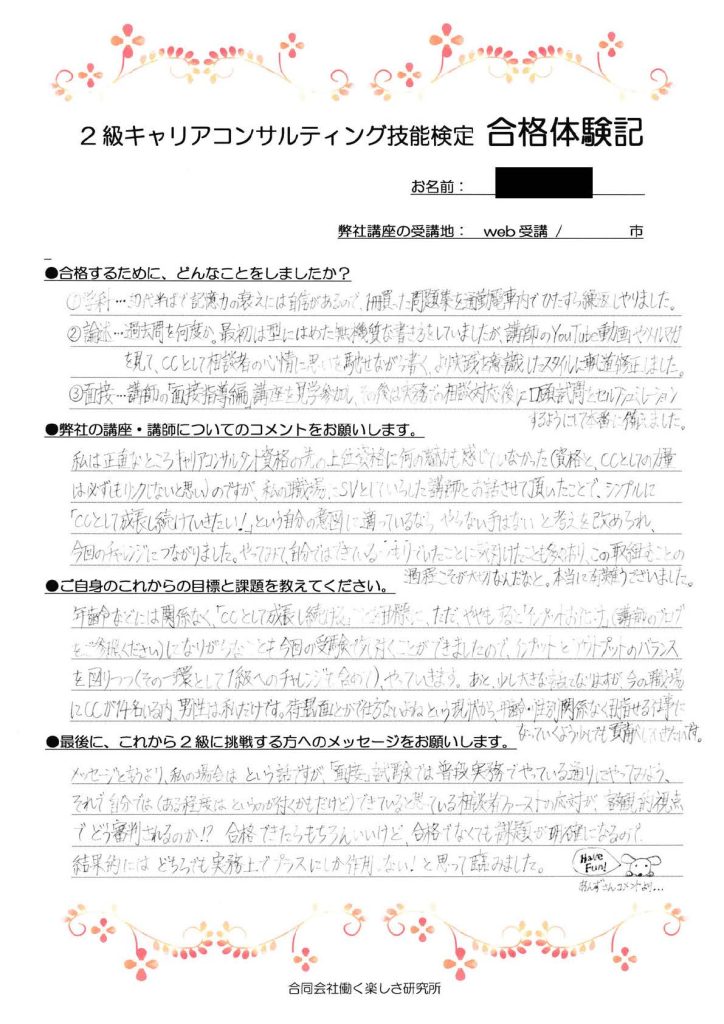 2級キャリアコンサルティング技能検定 合格体験記
お名前：
弊社講座の受講地： web受講 / 市
●合格するために、どんなことをしましたか？
①学科…50代半ばで記憶力の衰えには自信があるので、1冊買った問題集を通勤電車内でひたすら繰返しやりました。
②論述…過去問を何度か。最初は型にはめた無機質な書き方をしていましたが、講師のYouTube動画やメルマガ
を見て、CCとして相談者の心情に思いを馳せながら書く、より実践を意識したスタイルに軌道修正しました。
③面接…講師の「面接指導編」講座を見学参加し、その後は実務での相談対応後に口頭試問とセルフ
するようにして本番に備えました。
●弊社の講座・講師についてのコメントをお願いします。
私は正直なところキャリアコンサルタント資格の先の上位資格に何の魅力も感じていなかった(資格と、CCとしての力量
は必ずしもリンクしないと思い)のですが、私の職場、SVとしていらした講師とお話させて頂いたことで、シンプルに
「CCとして成長し続けていきたい！」という自分の意図に適っているなら、やらない手はないと考えを改められ、
今回のチャレンジにつながりました。やってみて、自分ではできているつもりでいたことに気付けたことも多々あり、この取組むことの
過程こそが大切なんだなと。本当に有難うございました。
●ご自身のこれからの目標と課題を教えてください。
年齢などには関係なく、「CCとして成長し続ける」ことが目標に、ただ、ややもすると「インプットおたく」(講師のブログ
をご参照ください)になりがちなことも今回の受験で気付くことができましたので、インプットとアウトプットのバランス
を図りつつ(その一環として1級へのチャレンジも含めて)、やっていきます。あと、少し大きな話になりますが今の職場
にCCが14名いる内、男性は私だけです。待遇面とかで仕方ないよねという現状から、年齢・性別関係なく目指せる仕事に
なっていくよう少しでも貢献していきたいです。
●最後に、これから２級に挑戦する方へのメッセージをお願いします。
メッセージというより、私の場合は という話ですが、「面接」試験では普段実務でやっている通りにやってみよう、
それで自分では(ある程度は、というのが付くかもだけど)できていると思っている相談者ファーストの応対が、客観的視点
でどう審判されるのか!? 合格できたらもちろんいいけど、合格でなくても課題が明確になるので、
結果的には どちらでも実務上でプラスにしか作用しない！と思って臨みました。
Have Fun!
あんずさんコメントより...
合同会社働く楽しさ研究所